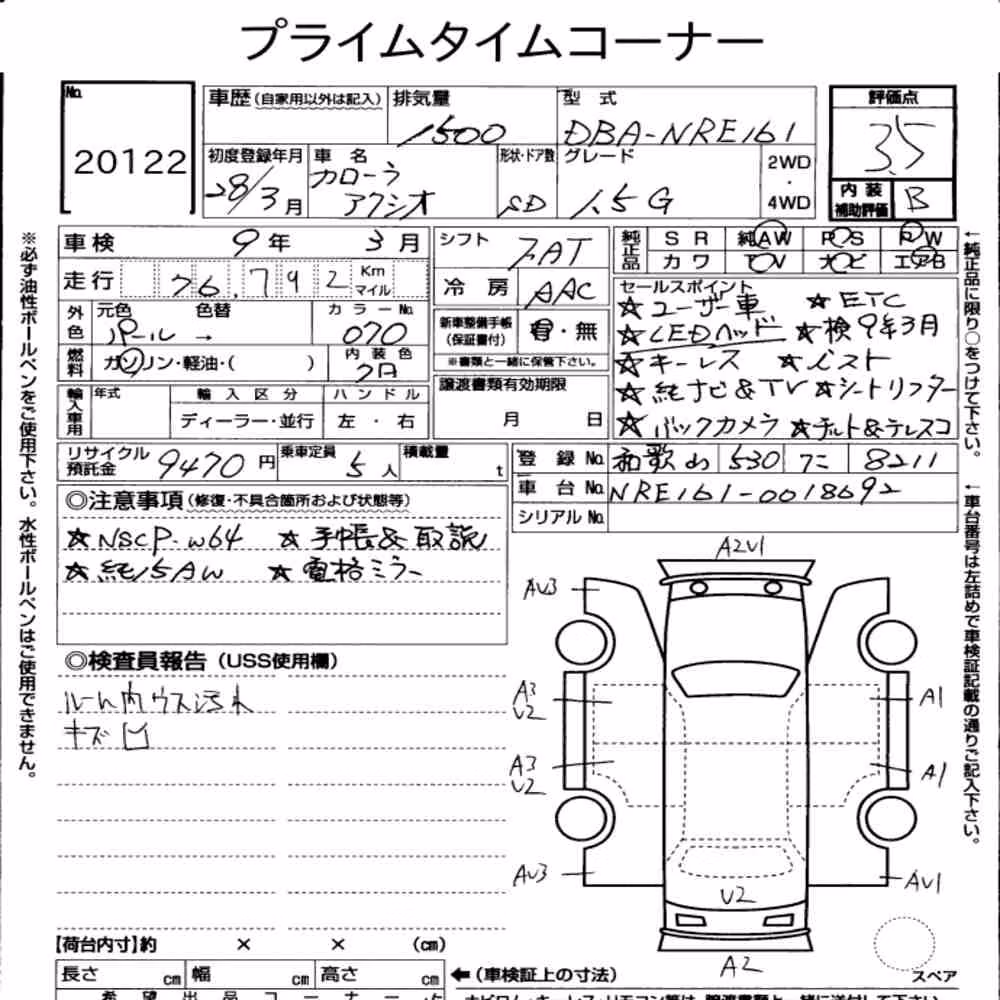 プライムタイムコーナー
No. 20122
車歴(自家用以外は記入) 排気量 1500 型式 DBA-NRE161
初度登録年月 28/3月 車名 カローラ アクシオ 形状・ドア数 SD グレード 1.5G 2WD・4WD
評価点 3.5
内装補助評価 B
車検 9年 3月
走行 76,792 Km マイル
外色 元色 パール → 色替 カラーNo. 070
燃料 ガソリン・軽油・( ) 内装色
輸入車用 年式 輸入区分 ディーラー・並行 ハンドル 左・右
シフト FAT
冷房 AAC
新車整備手帳(保証書付) 有・無
※書類と一緒に保管下さい。
譲渡書類有効期限
月 日
純正品 SR 純AW PS PW
カワ TV ナビ エアB
セールスポイント
☆ユーザー車 ☆ETC
☆LEDヘッド ☆検9年3月
☆キーレス ☆Iスト
☆純ナビ&TV ☆シートリフター
☆バックカメラ ☆チルト&テレスコ
リサイクル預託金 9470円 乗車定員 5人 積載量 t
登録No. 和歌山 530 フニ 8211
車台No. NRE161-0018692
シリアルNo.
◎注意事項(修復・不具合箇所および状態等)
☆NSCP-W64 ☆手帳&取説
☆純15AW ☆電格ミラー
◎検査員報告(USS使用欄)
ルーム内ウス汚れ
キズ凹
A2V1
AV3
A3
U2
A1
A3
U2
A1
AV3
AV1
U2
A2
スペア
【荷台内寸】約 × × (cm)
長さ cm 幅 cm 高さ cm
←(車検証上の寸法)
希望出品コーナー
※必ず油性ボールペンをご使用下さい。水性ボールペンはご使用できません。
←純正品に限り○をつけて下さい。
←車台番号は左詰めで車検証記載の通りご記入下さい。